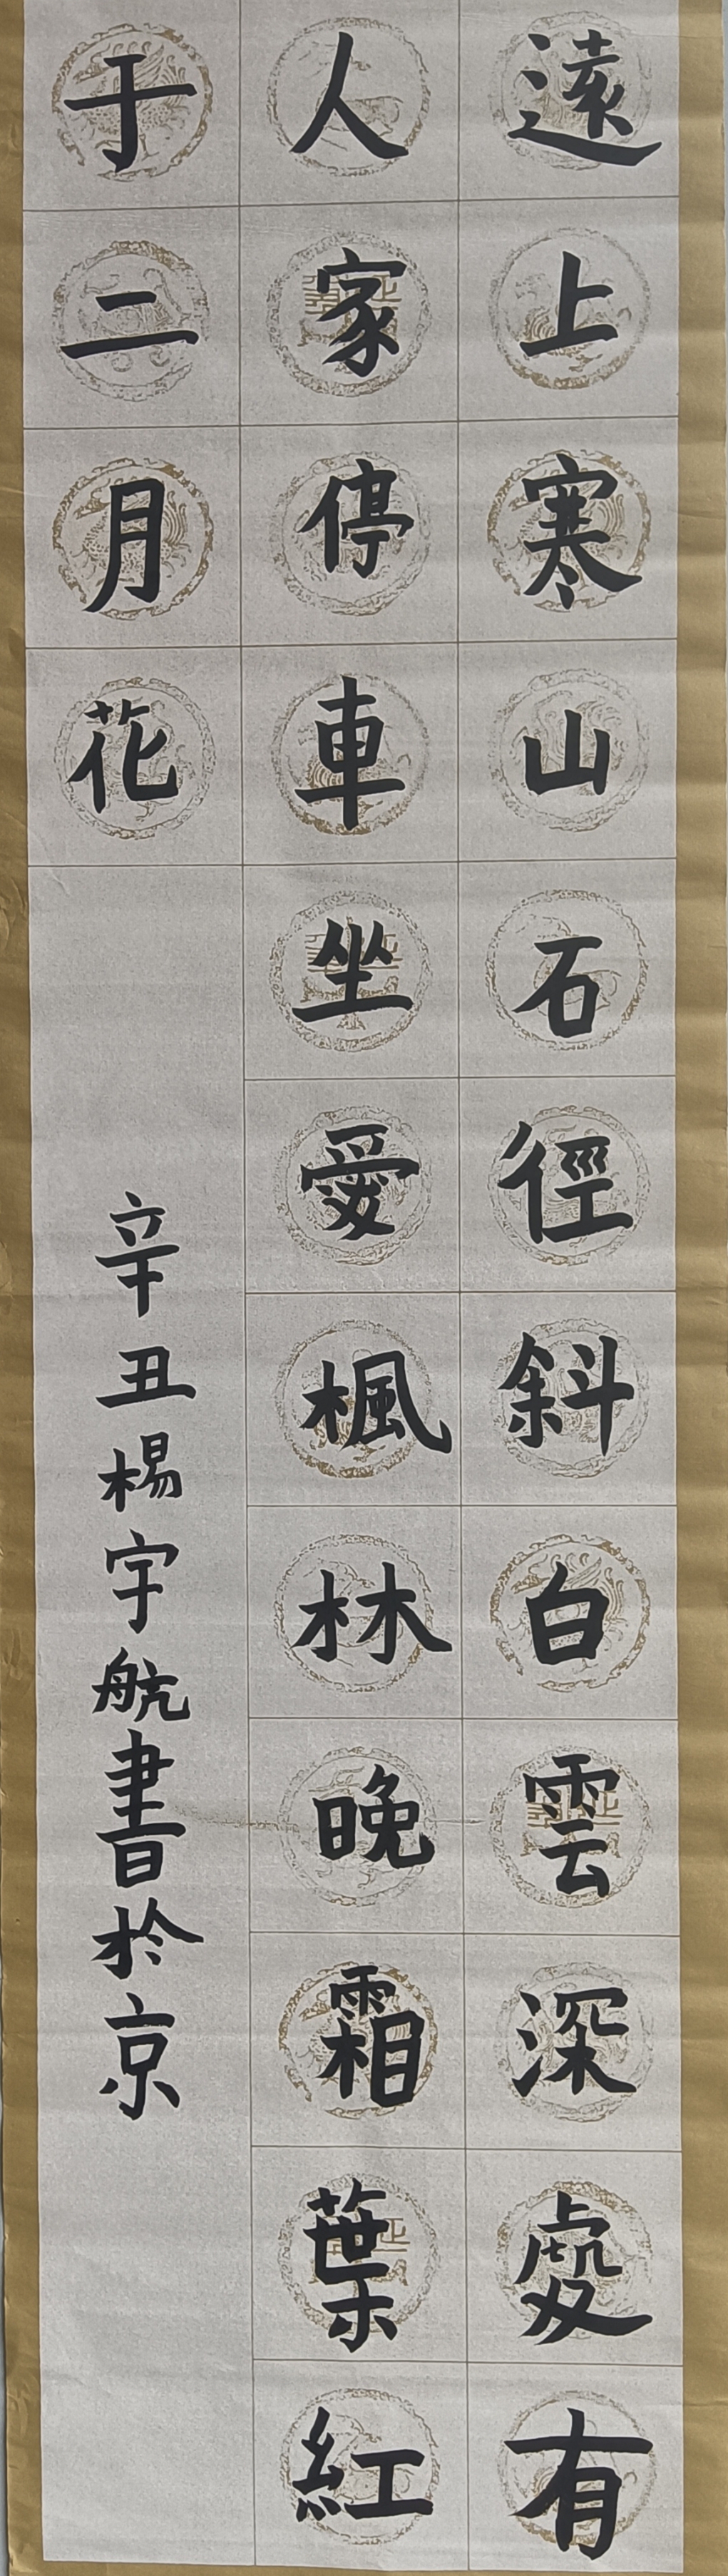 遠上寒山石徑斜白雲深處有
人家停車坐愛楓林晚霜葉紅
于二月花
辛丑楊宇航書於京